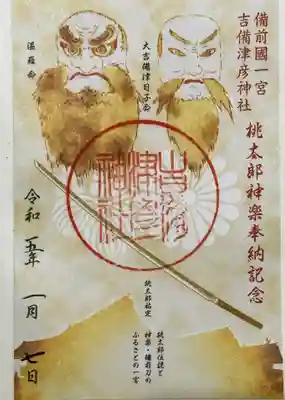 備前國一宮
吉備津彦神社
桃太郎神楽奉納記念
大吉備津日子命
温羅命
吉備
津彦
神社
令和五年一月七日
桃太郎伝説と
神楽・備前刀の
ふるさとの一宮